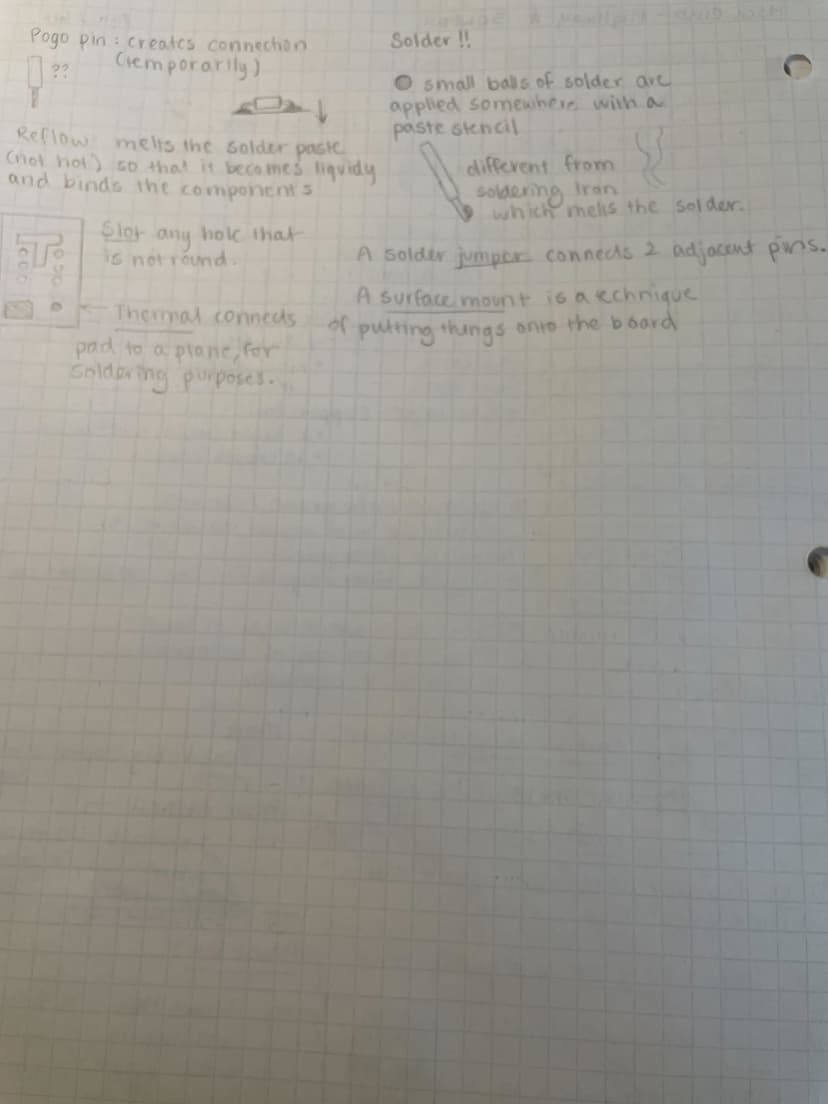 Pogo pin : creates connection
(temporarily)
??
Reflow melts the solder paste
(not hot) so that it becomes liquidy
and binds the components
Slot any hole that
is not round.
Thermal connects
pad to a plane, for
soldering purposes.
Solder !!
small balls of solder are
applied somewhere with a
paste stencil
different from
soldering Iron
which melts the solder.
A solder jumper connects 2 adjacent pins.
A surface mount is a technique
of putting things onto the board